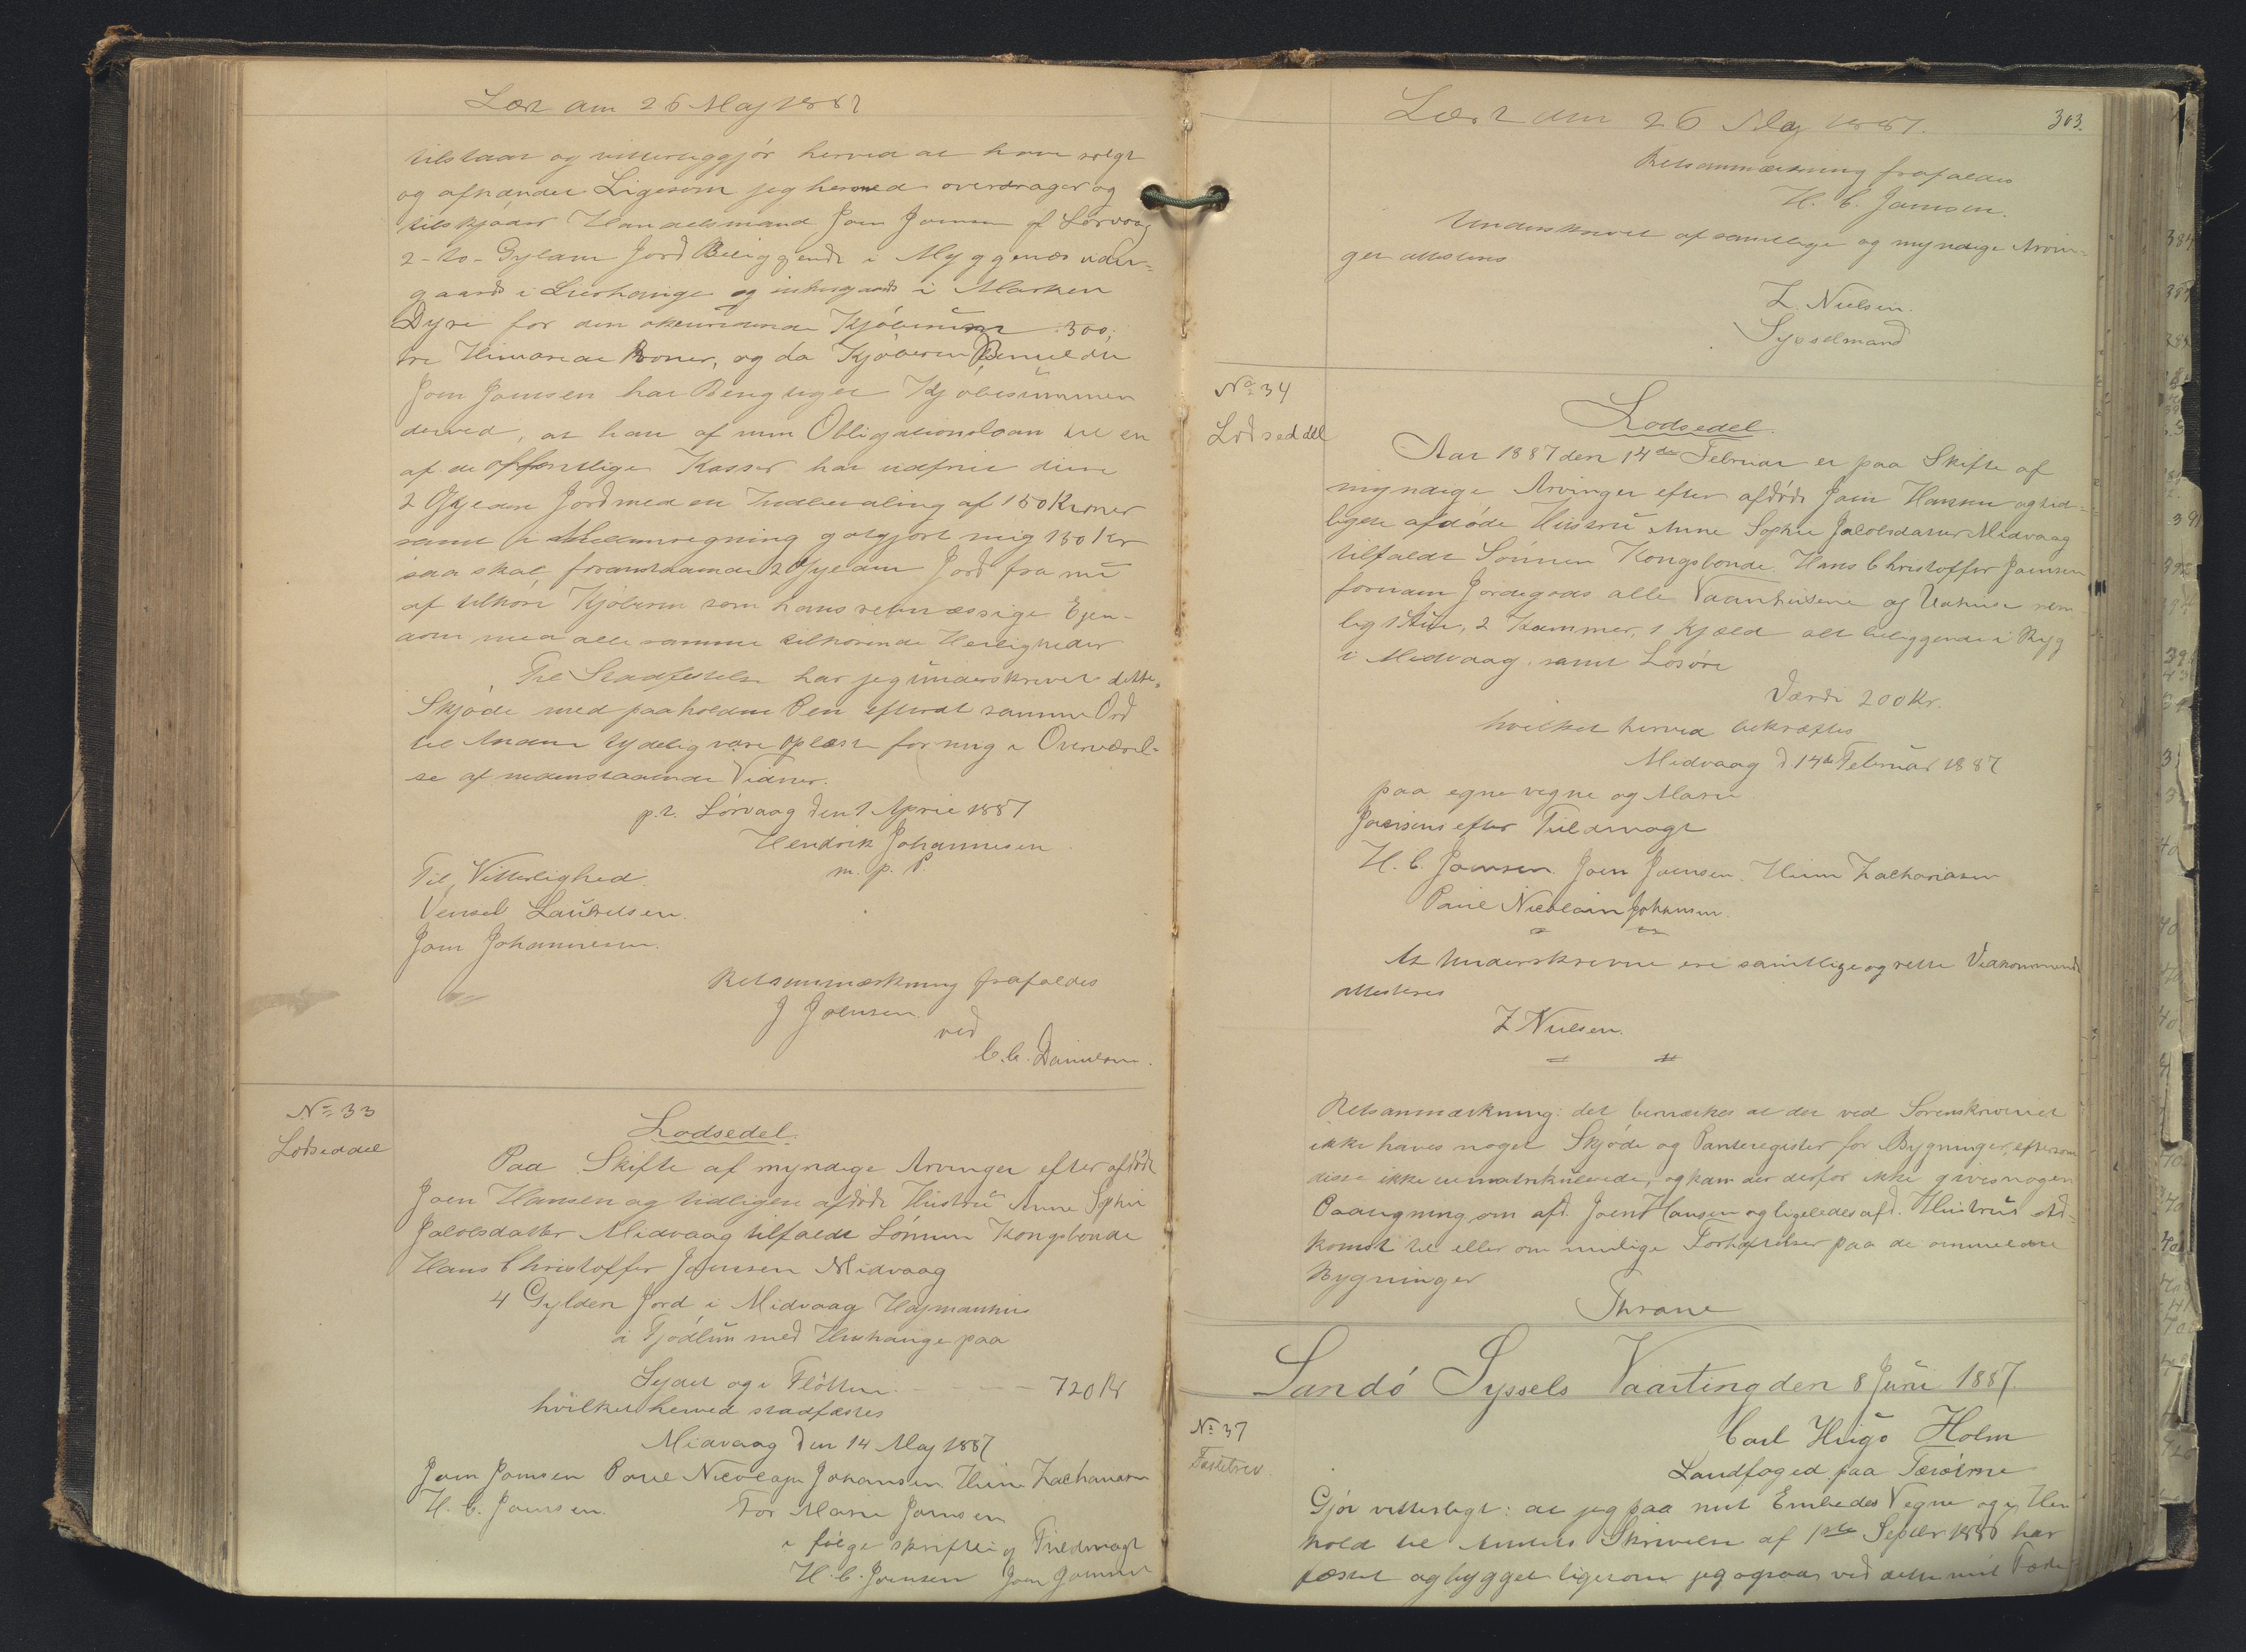 Læst den 26 Maj 1887
tilstaar og vitterliggjör herved at have solgt
og afhændet Ligesom jeg hermed overdrager og
tilskjöder Handelsmand Joen Joensen af Sörvaag
2 - to - Gylden Jord Beliggende i Myggenæs uden-
gaards i Lierhauge og indengaards i Marken
Dyri for den omkundne Kjöbesum 300,
tre Hundrede Kroner, og da Kjöberen Bemeldte
Joen Joensen har Berigtiget Kjöbesummen
derved, at han af min Obligationslaan til en
af de offentlige Kasser har udfriet disse
2 Gylden Jord med en Indbetaling af 150 Kroner
samt i Mellemregning godgjort mig 150 Kr
saa skal foranstaaende 2 Gylden Jord fra nu
af tilhöre Kjöberen som hans retmæssige Ejen-
dom med alle samme tilhörende Herligheder
Til Stadfestelse har jeg underskrevet dette
Skjöde med paaholden Pen efterat samme Ord
til Andet tydelig vare oplæste for mig i Overværel-
se af nedenstaaende Vidner.
p.t. Sörvaag den 1 April 1887
Hendrik Johannesen
m. p. P.
Til Vitterlighed
Vensel Lauritsen.
Joen Johannesen.
Retsanmærkning frafaldes
J Joensen
ved
C. C. Danielsen.
No 33
Lodseddel
Lodsedel.
Paa Skifte af myndige Arvinger efter afdöde
Joen Hansen og tidligere afdöde Hustru Anne Sophie
Jacobsdatter Midvaag tilfaldt Sönnen Kongsbonde
Hans Christoffer Joensen Midvaag
4 Gylden Jord i Midvaag Højmanhus
i Tjödlum med Hushauge paa
Sydet og i Flötten. - - - - 720 Kr
hvilket herved stadfæstes
Midvaag den 14 Maj 1887
Joen Joensen Poul Nicolaj Johansen Heine Zachariasen
H. C. Joensen. For Maren Joensen
i fölge skriftlig Fuldmagt
H. C. Joensen Joen Joensen
Læst den 26 Maj 1887.
303.
Retsanmærkning frafaldes
H. C. Joensen.
Underskrevet af samtlige og myndige Arvin-
ger attesteres
Z. Nielsen.
Sysselmand
No 34
Lodseddel
Lodsedel.
Aar 1887 den 14de Februar er paa Skifte af
myndige Arvinger efter afdöde Joen Hansen og tid-
ligere afdöde Hustru Anne Sophie Jacobsdatter Midvaag
tilfaldt Sönnen Kongsbonde Hans Christoffer Joensen
foruden Jordegods alle Vaanhusene og Udhuse nem-
lig 1 Stue, 2 Kammer, 1 Kjæld alt beliggende i Ryg
i Midvaag, samt Lösöre
Værdi 200 Kr.
hvilket herved bekræftes
Midvaag d 14de Februar 1887
paa egne vegne og Maren
Joensens efter Fuldmagt
H. C. Joensen. Joen Joensen. Heine Zachariasen
Poul Nicolain Johansen.
At Underskrevne ere samtlige og rette Vedkommende
attesteres
Z Nielsen.
Retsanmærkning: det bemærkes at der ved Sorenskriveriet
ikke haves noget Skjöde og Panteregister for Bygninger, eftersom
disse ikke ere matrikulerede, og kan der derfor ikke gives nogen
Paategning om afd. Joen Hansen og ligeledes afd. Hustrus Ad-
komst til eller om mulige Forhæftelser paa de ommeldte
Bygninger
Thrane
Sandö Syssels Vaarting den 8 Juni 1887
No 37
Festebrev.
Carl Hugo Holm
Landfoged paa Færöerne
Gjör vitterligt: at jeg paa mit Embedes Vegne og i Hen-
hold til Amtets Skrivelse af 1ste Septbr 1880 har
fæstet og bygget ligesom jeg ogsaa ved dette mit Fæste